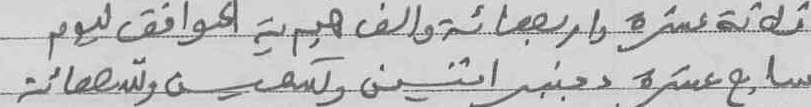 ثلاثة عشرة واربعمائة والف هجرية الموافق ليوم
سابع عشرة دجنبر اثنين وتسعين وتسعمائة